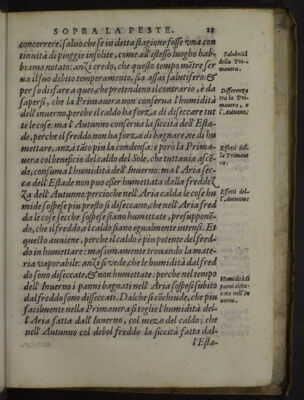 SOPRA LA PESTE. 28
concorrere. saluo che se in detta stagione fosse vna con
tinuità di pioggie insolite, come all'istesso luogo hab-
biamo notato: anzi credo, che questo tempo mẽtre ser
ua il suo debito temperamento, sia assai salutifero: &
per sodisfare a quei, che pretendeno il contrario, è da
sapersi, che la Primauera non conserua l'humidità
dell'inuerno, perche il caldo ha forza di diseccare tut
te le cose: ma l'Autunno conserua la siccità dell'Esta-
de, perche il freddo non ha forza di bagnare, ne di hu
mettare, anzi tãto piu la condensa: e però la Prima-
uera col beneficio del caldo del Sole, che tuttauia ascẽ-
de, consuma l'humidità dell'Inuerno: ma l'Aria sec-
ca dell'Estade non puo esser humettata dalla freddez
za dell'Autunno. percioche nell'Aria calda le cose hu
mide sospese piu presto si diseccano, che nell'Aria fred
da le cose secche sospese siano humettate, presupponẽ-
do, che il freddo, e'l caldo siano egualmente intensi. Et
questo auuiene, perche il caldo è piu potente del fred-
do in humettare: massimamente trouando la mate-
ria vaporabile: anzi si vede, che le humidità dal fred
do sono disseccate, & non humettate. perche nel tempo
dell'Inuerno i panni bagnati nell'Aria sospesi subito
dal freddo sono disseccati. Dal che si cõchiude, che piu
facilmente nella Primauera si toglie l'humidità del-
l'Aria fatta dall'Inuerno, col mezo del caldo; che
nell'Autunno col debol freddo la siccità fatta dal-
l'Esta-
Salubrità
della Pri-
mauera.
Differenza
tra la Pri-
mauera, e
l'Autunno.
Effetti del-
la Primaue
ra.
Effetti del-
l'Autunno
Humidità di
panni disec-
cata nell'In
uerno.